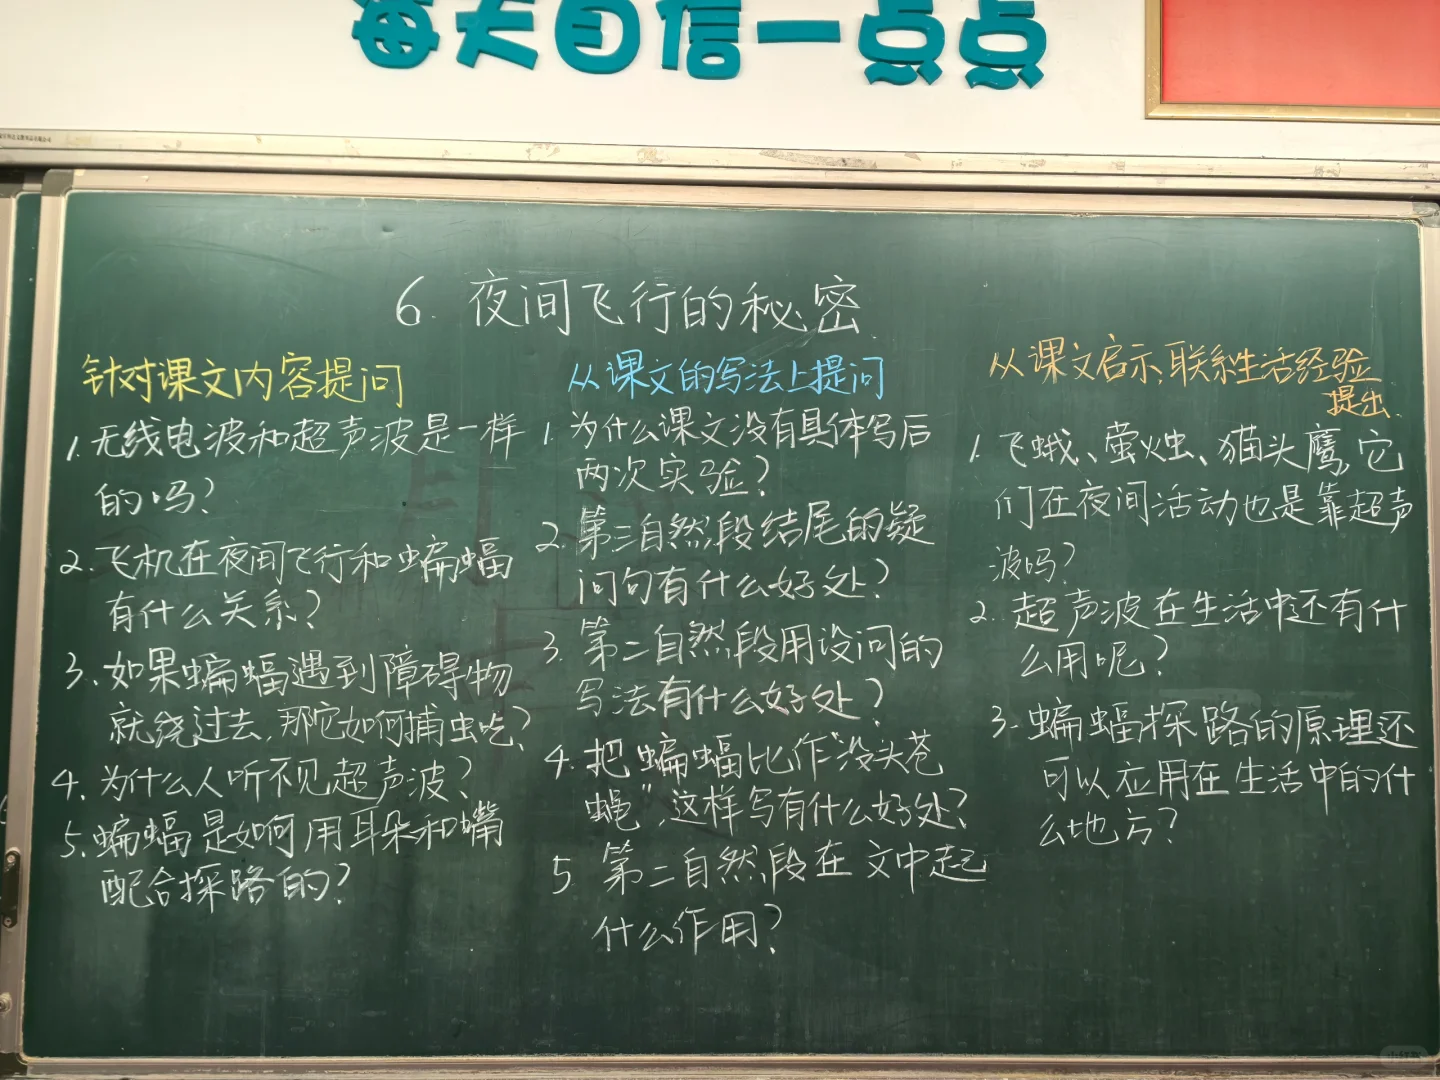 每天自信一点点
6. 夜间飞行的秘密
针对课文内容提问
1. 无线电波和超声波是一样
的吗?
2. 飞机在夜间飞行和蝙蝠
有什么关系?
3. 如果蝙蝠遇到障碍物
就绕过去,那它如何捕虫吃?
4. 为什么人听不见超声波?
5. 蝙蝠是如何用耳朵和嘴
配合探路的?
从课文的写法上提问
1. 为什么课文没有具体写后
两次实验?
2. 第三自然段结尾的疑
问句有什么好处?
3. 第二自然段用设问的
写法有什么好处?
4. 把蝙蝠比作“没头苍
蝇”,这样写有什么好处?
5 第二自然段在文中起
什么作用?
从课文启示,联系生活经验
提出
1. 飞蛾、萤火虫、猫头鹰,它
们在夜间活动也是靠超声
波吗?
2. 超声波在生活中还有什
么用呢?
3. 蝙蝠探路的原理还
可以应用在生活中的什
么地方?